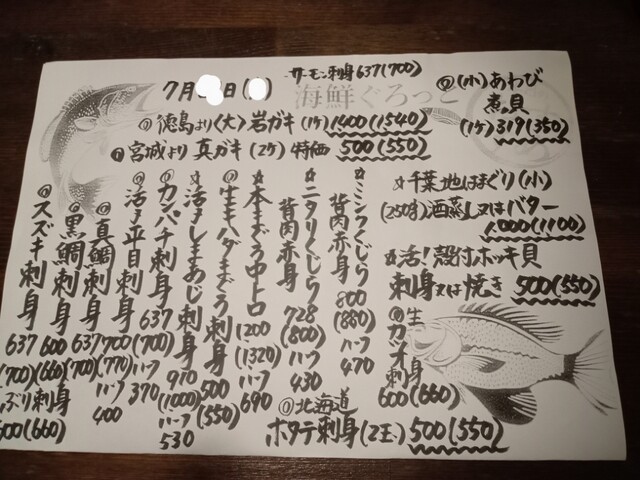 サーモン刺身637(700)
7月 日( )
海鮮ぐろっと
◎(小)あわび
煮貝
(1ケ)319(350)
◎徳島より〈大〉岩ガキ(1ケ)1400(1540)
宮城より真ガキ(2ケ)特価500(550)
☆千葉地はまぐり(小)
(250g)酒蒸し又はバター
1,000(1100)
活!殻付ホッキ貝
刺身又は焼き500(550)
☆ミンクくじら
背肉赤身800
(880)ハーフ470
☆ニタリくじら
背肉赤身728
(800)ハーフ430
☆本まぐろ中トロ1200
(1320)ハーフ690
◎生キハダまぐろ刺身500
(550)
☆活〆しまあじ刺身970
(1000)ハーフ530
◎カンパチ刺身637
(700)ハーフ370
◎活〆平目刺身700
(770)ハーフ400
◎真鯛刺身637
(700)
◎黒鯛刺身600
(660)
◎スズキ刺身637
(700)
ぶり刺身
600(660)
◎生カツオ刺身
600(660)
◎北海道
ホタテ刺身(2玉)500(550)